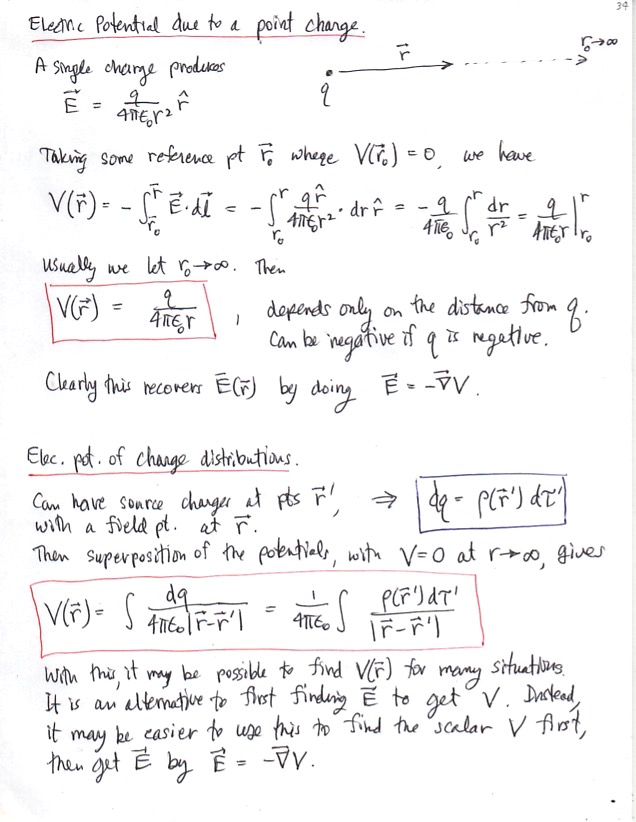 34
Electric Potential due to a point charge.
A single charge produces
E⃗ = q/(4πε₀r²) r̂
q r⃗ r₀→∞
Taking some reference pt r⃗₀ where V(r⃗₀) = 0, we have
V(r⃗) = - ∫_{r⃗₀}^{r⃗} E⃗·dl⃗ = - ∫_{r₀}^{r} q r̂/(4πε₀r²) · dr r̂ = - q/(4πε₀) ∫_{r₀}^{r} dr/r² = q/(4πε₀r) |_{r₀}^{r}
Usually we let r₀→∞. Then
V(r⃗) = q/(4πε₀r) , depends only on the distance from q.
Can be negative if q is negative.
Clearly this recovers E⃗(r⃗) by doing E⃗ = -∇⃗V.
Elec. pot. of charge distributions.
Can have source charges at pts r⃗', ⇒ dq = ρ(r⃗') dτ'
with a field pt. at r⃗.
Then superposition of the potentials, with V=0 at r→∞, gives
V(r⃗) = ∫ dq/(4πε₀|r⃗-r⃗'|) = 1/(4πε₀) ∫ ρ(r⃗')dτ'/|r⃗-r⃗'|
With this, it may be possible to find V(r⃗) for many situations.
It is an alternative to first finding E⃗ to get V. Instead,
it may be easier to use this to find the scalar V first,
then get E⃗ by E⃗ = -∇⃗V.